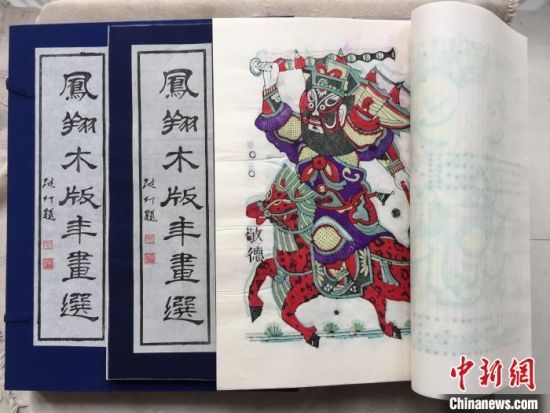 鳳翔木版年畫選
張仃題
鳳翔木版年畫選
張仃題
敬德
中新網
Chinanews.com